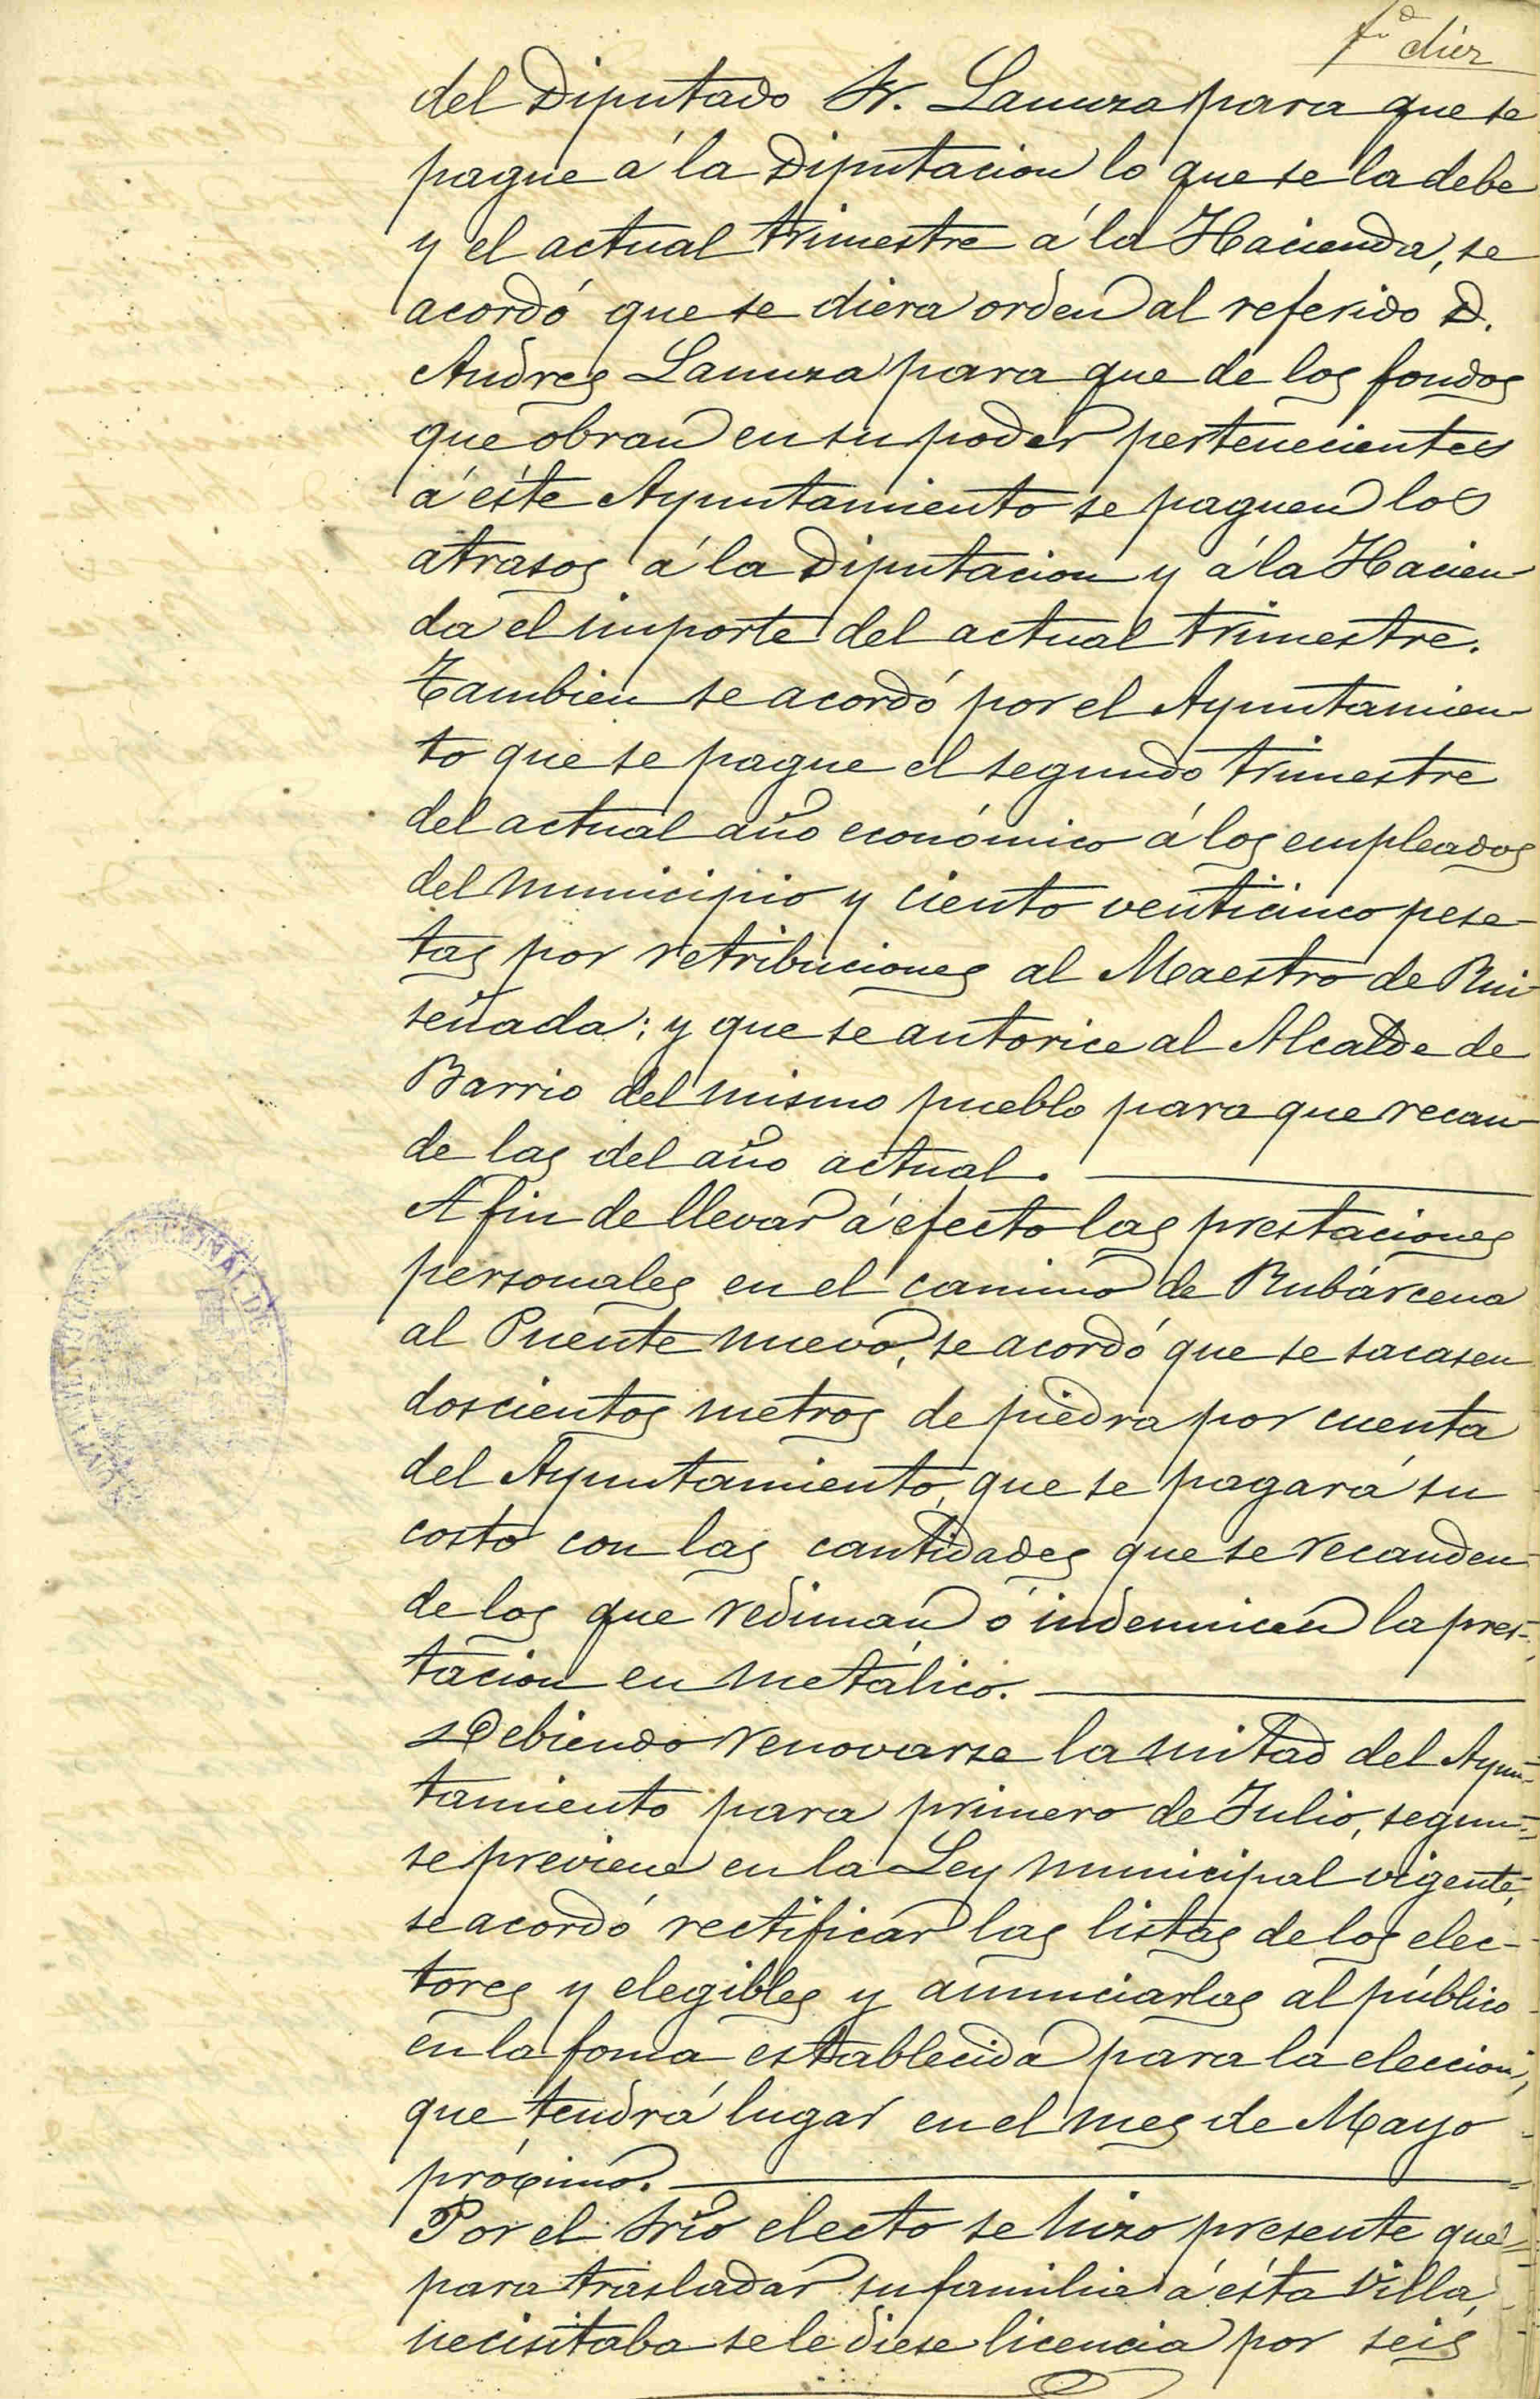 fº diez
del Diputado Sr. Lanuza para que se
pague á la Diputacion lo que se la debe
y el actual trimestre á la Hacienda, se
acordó que se diera orden al referido D.
Andres Lanuza para que de los fondos
que obran en su poder pertenecientes
á éste Ayuntamiento se paguen los
atrasos á la Diputacion y á la Hacien-
da el importe del actual trimestre.
Tambien se acordó por el Ayuntamien-
to que se pague el segundo trimestre
del actual año económico á los empleados
del municipio y ciento venticinco pese-
tas por retribuciones al Maestro de Rui-
señada; y que se autorice al Alcalde de
Barrio del mismo pueblo para que recau-
de las del año actual.
A fin de llevar á efecto las prestaciones
personales en el camino de Rubárcena
al Puente nuevo, se acordó que se sacasen
doscientos metros de piedra por cuenta
del Ayuntamiento, que se pagará su
costo con las cantidades que se recauden
de los que rediman ó indemnicen la pres-
tacion en metálico.
Debiendo renovarse la mitad del Ayun-
tamiento para primero de Julio, segun
se previene en la Ley municipal vigente,
se acordó rectificar las listas de los elec-
tores y elegibles y anunciarlas al público
en la foma establecida para la eleccion,
que tendrá lugar en el mes de Mayo
próximo.
Por el Srio electo se hizo presente que
para trasladar su familia á ésta Villa,
necisitaba se le diese licencia por seis